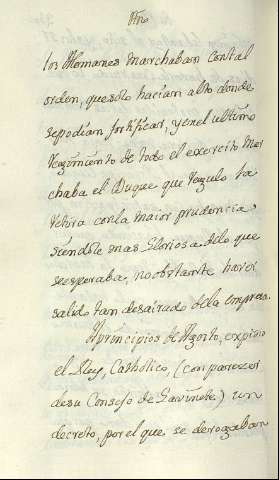 Año
los Alemanes marchaban con tal
orden, que solo hacian alto donde
se podian fortificar, y en el ultimo
regimiento de todo el exercito mar
chaba el Duque que regulo la
retira con la maior prudencia,
siendole mas gloriosa de lo que
se esperaba, no obstante haver
salido tan desairado de la empresa.
A principios de Agosto, expidio
el Rey, Catholico, (con parecer
de su Consejo de Gavinete) un
decreto, por el que se derogaban